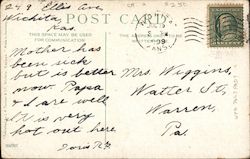 924 Ellis Ave
Wichita
Kas
POST CARD
THIS SPACE MAY BE USED
FOR COMMUNICATION
Mother has
been sick
but is better
now. Papa
& I are well
It is very
hot out here
Mrs. Wiggins,
Water St,
Warren,
Pa.